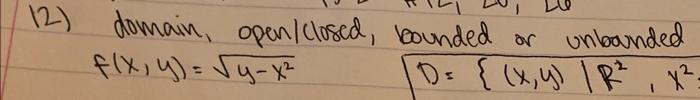 12) domain, open/closed, bounded or unbounded
f(x,y) = √y-x² D = { (x,y) | R², x²